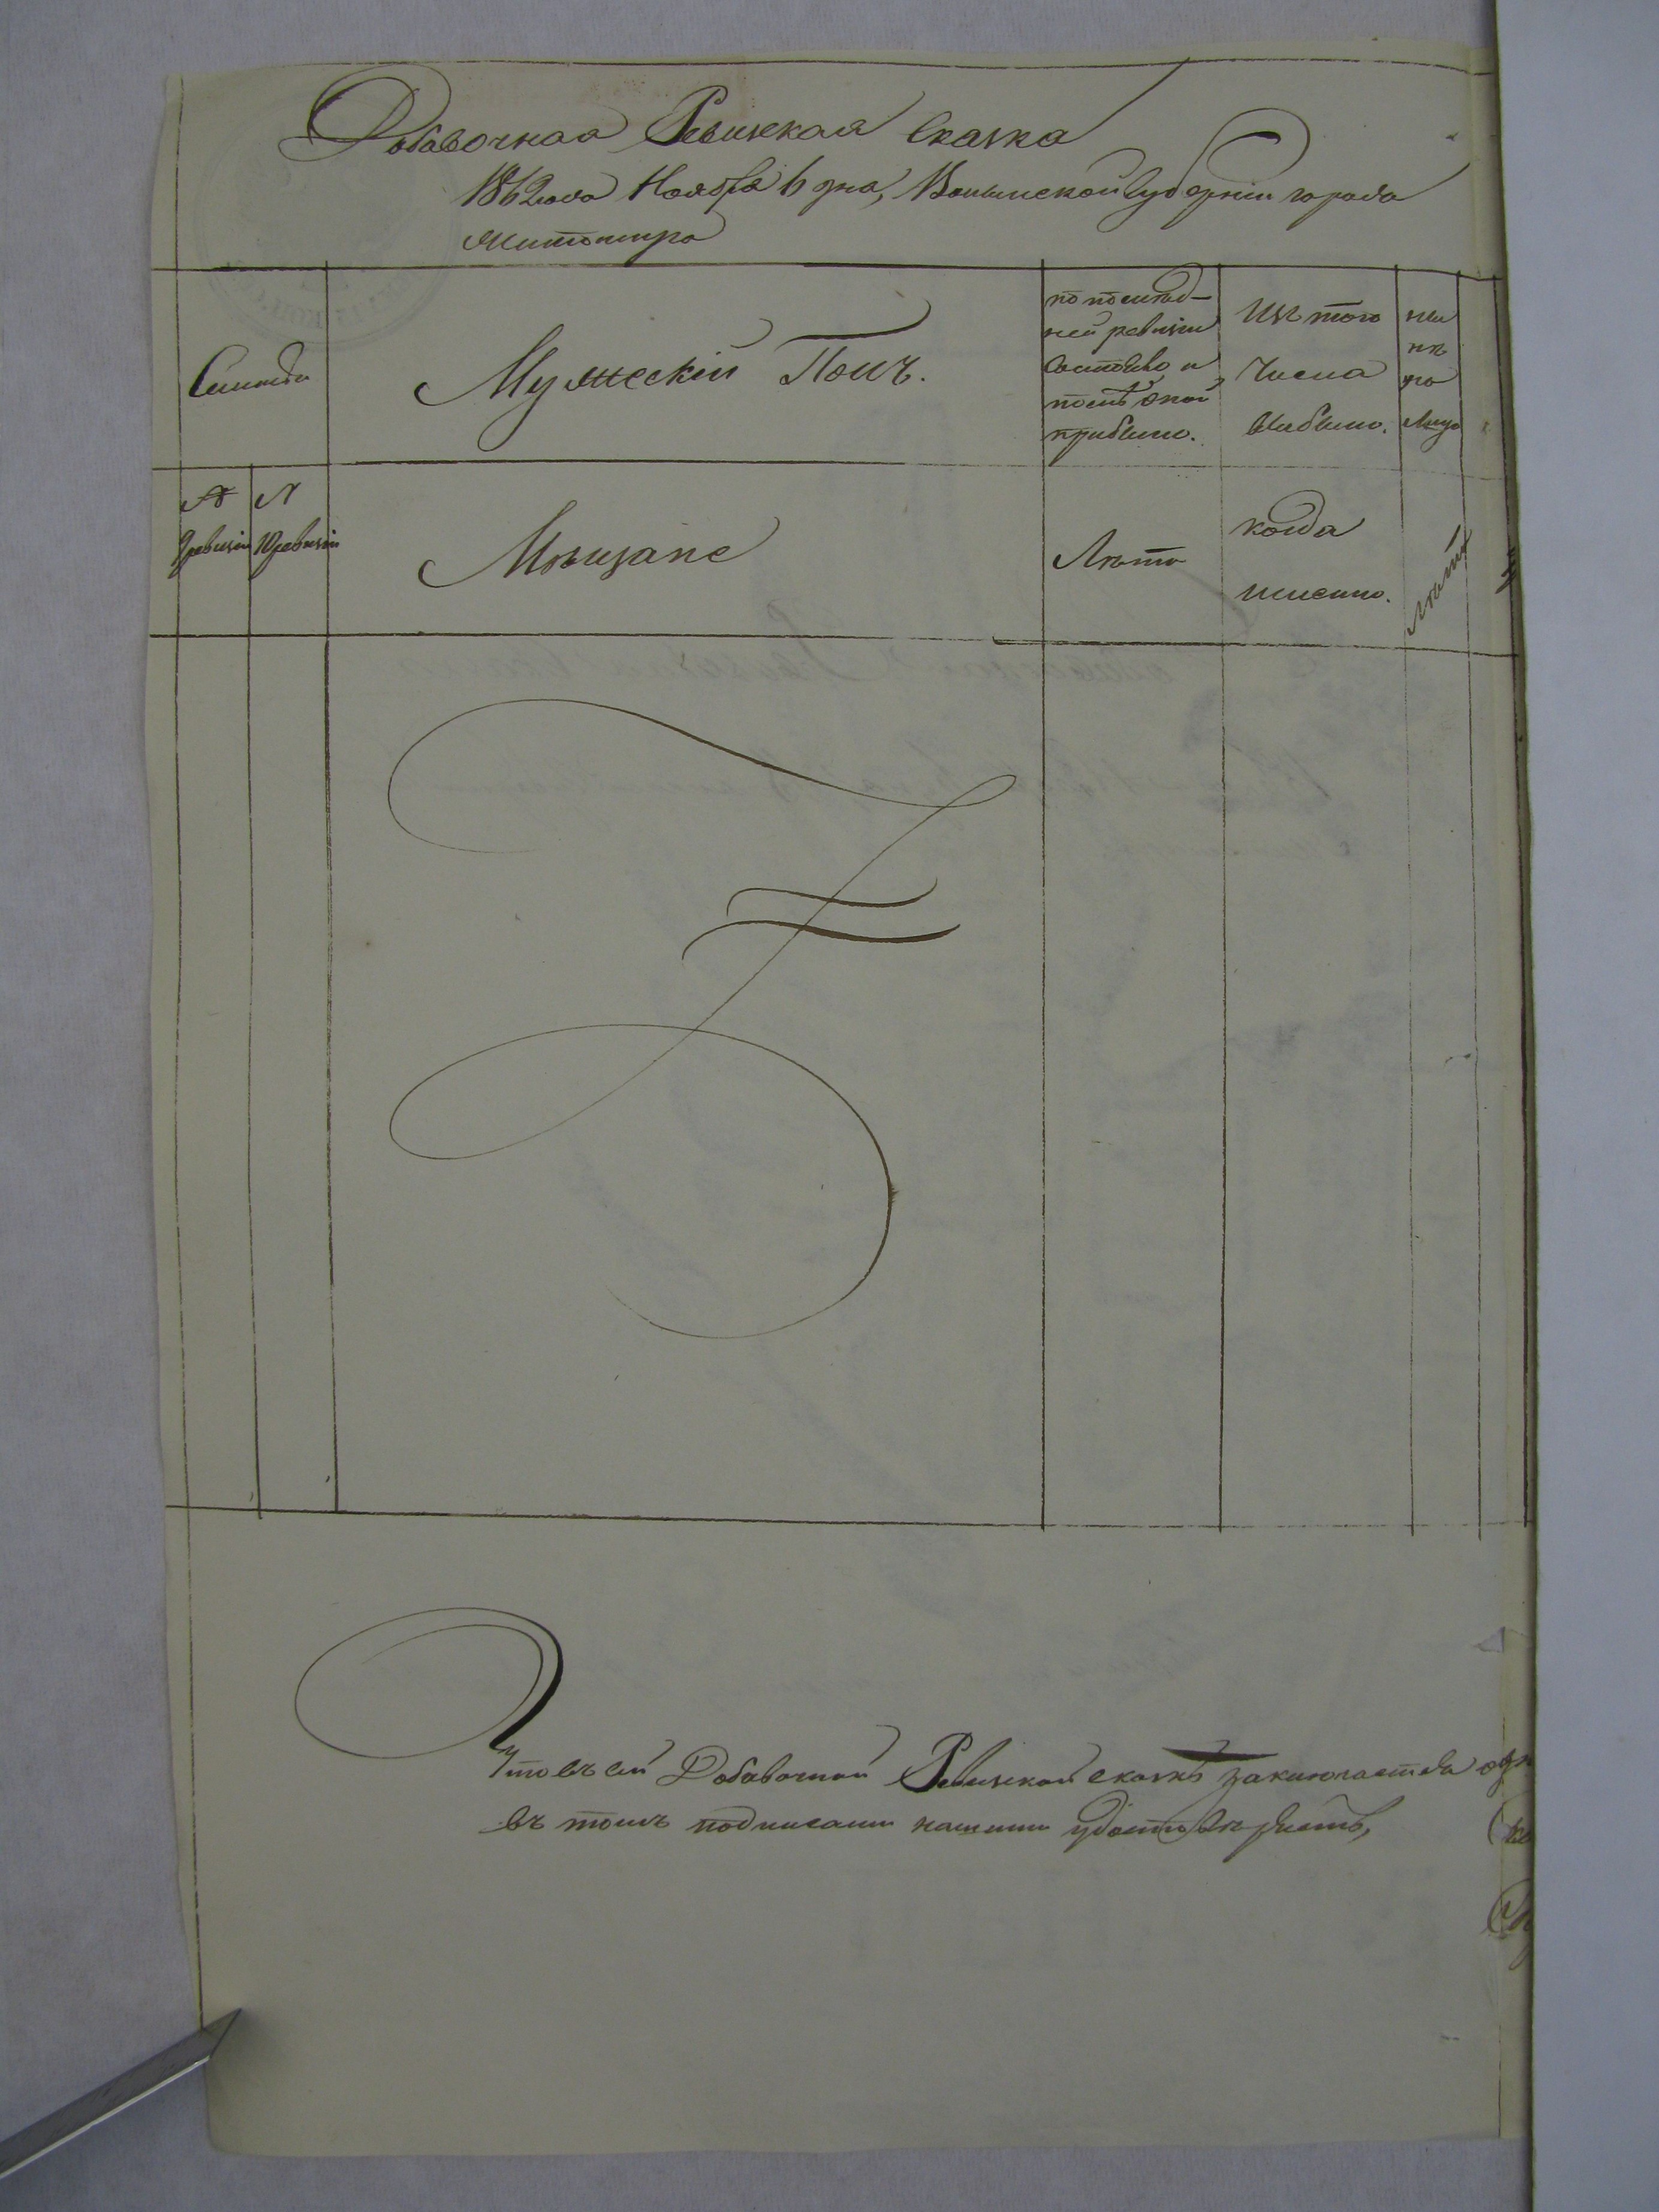 Добавочная Ревизская Сказка
1862 года Ноября 6 дня, Волынской Губерніи города
Житомира
Семьи
Мужескій Полъ.
по послѣд-
ней ревизіи
состояло и
послѣ оной
прибыло.
Изъ того
числа
выбыло.
ны
нѣ
на
лицо
№
9 ревизіи
№
10 ревизіи
Мѣщане
Лѣта
когда
именно.
Лѣта
Что въ сей Добавочной Ревизской сказкѣ заключается
въ томъ подписами нашими удостовѣряемъ,